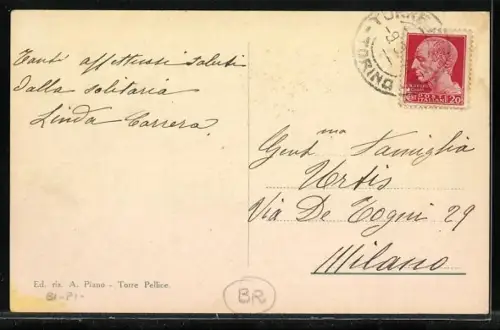 Tanti affettuosi saluti
dalla solitaria
Linda Carrera.
TORRE
TORINO
POSTE ITALIANE 20
Gent.ma Famiglia
Urtis
Via De Togni 29
Milano
Ed. ris. A. Piano - Torre Pellice.
BR